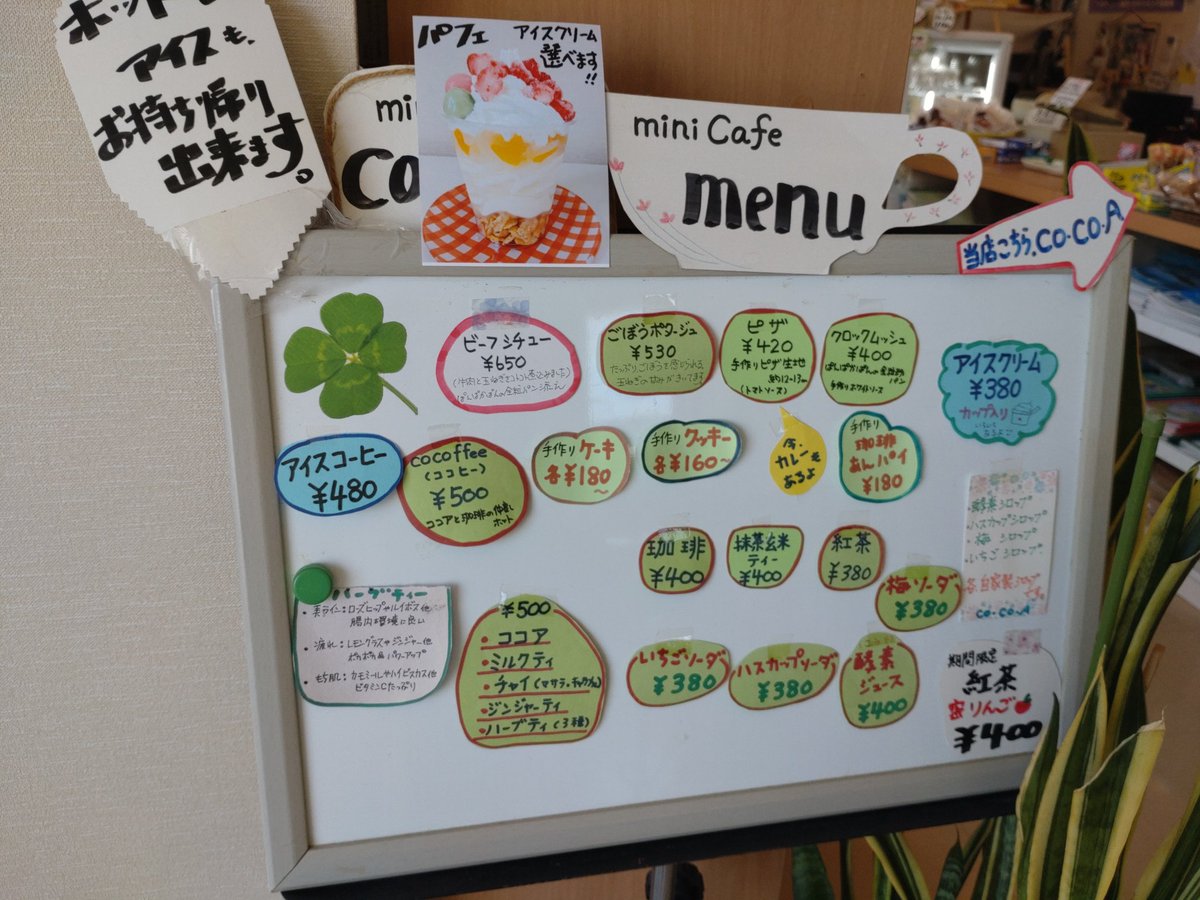 アイスも、
お持ち帰り
出来ます。
パフェ
アイスクリーム
選べます!!
mini Cafe
menu
当店こちら、CO・CO・A
ビーフシチュー
¥650
(牛肉と玉ねぎをコトコト煮込みました)
ぱんぱかぱんの全粒パン添え
ごぼうポタージュ
¥530
たっぷりごぼうを感じられる
ピザ
¥420
手作りピザ生地
約12~13cm
(トマトソース)
クロックムッシュ
¥400
ぱんぱかぱんの全粒粉
パン
手作りホワイトソース
アイスクリーム
¥380
カップ入り
アイスコーヒー
¥480
cocoffee
(ココヒー)
¥500
ココアと珈琲の仲良し
ホット
手作りケーキ
各¥180~
手作りクッキー
各¥160~
今、
カレーも
あるよ
手作り
珈琲
あんパイ
¥180
・酵素シロップ
・ハスカップシロップ
・梅シロップ
・いちごシロップ
各自家製シロップです
CO・CO・A
珈琲
¥400
抹茶玄米
ティー
¥400
紅茶
¥380
梅ソーダ
¥380
ハーブティー
・美ライン:ローズヒップやルイボス他
腸内環境に良い
・疲れ:レモングラスやジンジャー他
ポカポカ&パワーアップ
・もち肌:カモミールやハイビスカス他
ビタミンCたっぷり
¥500
・ココア
・ミルクティ
・チャイ(マサラ・チャックフル)
・ジンジャーティ
・ハーブティ(3種)
いちごソーダ
¥380
ハスカップソーダ
¥380
酵素
ジュース
¥400
期間限定
紅茶
蜜りんご
¥400